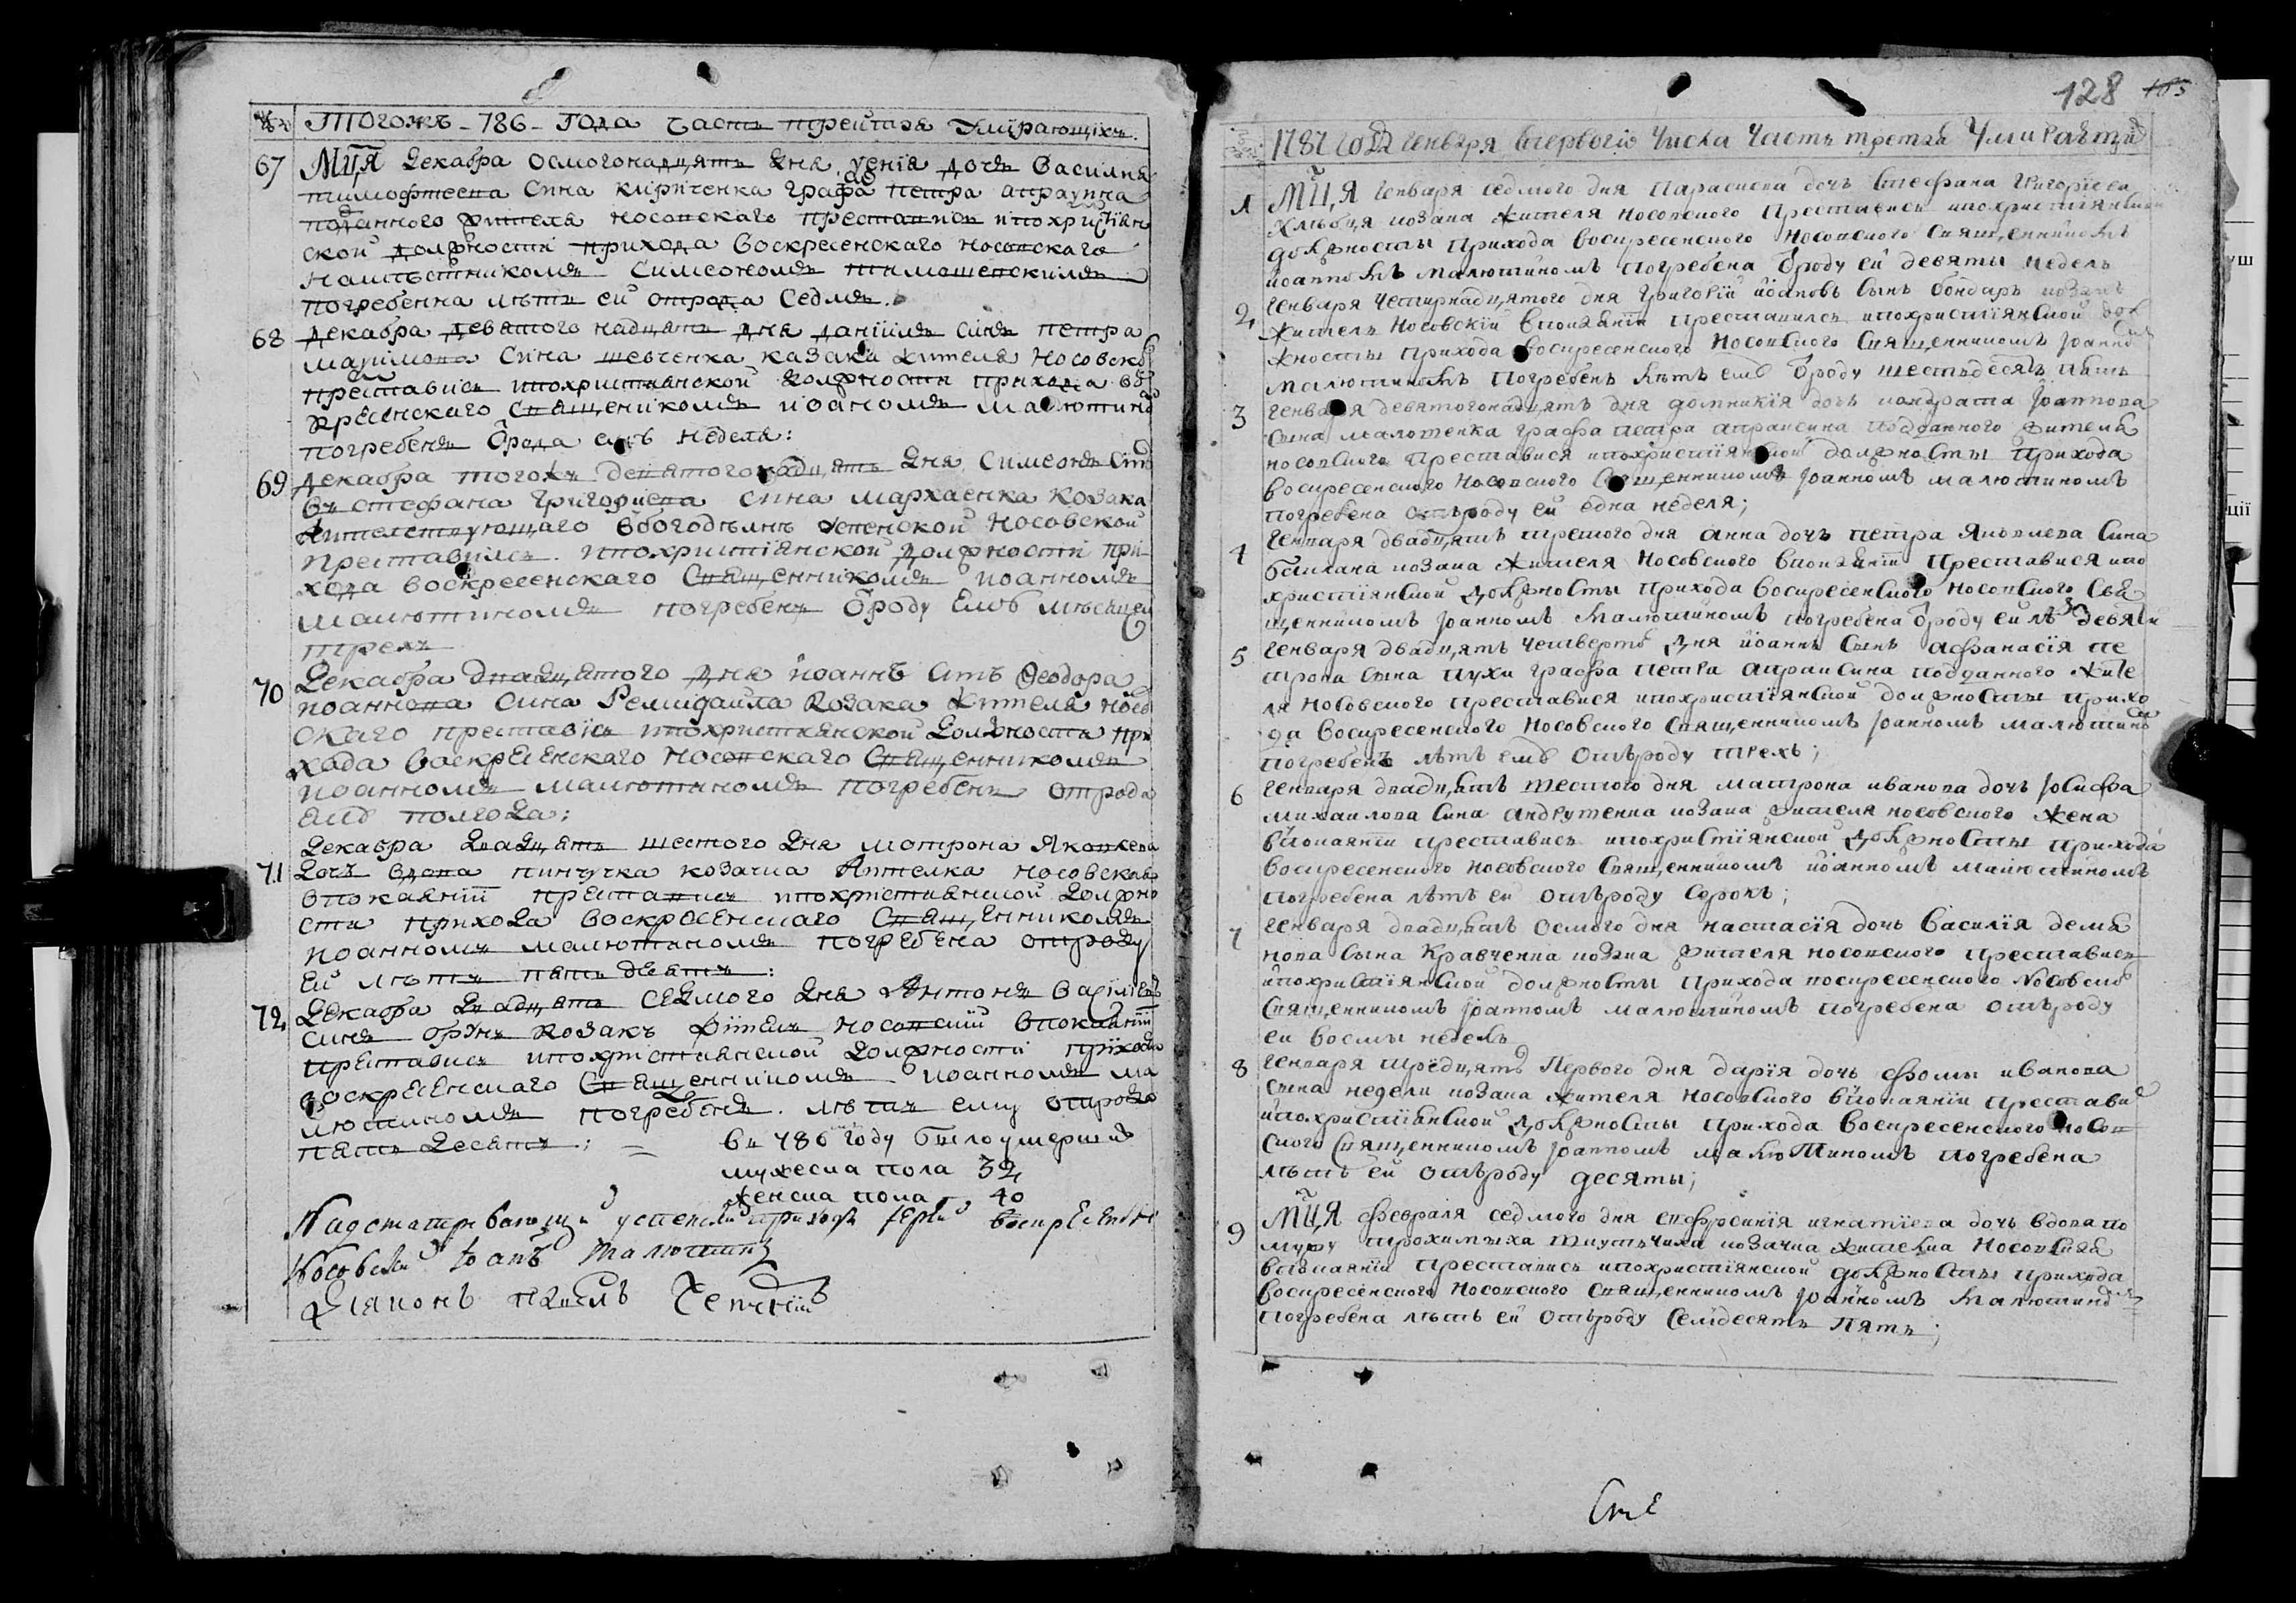 Тогожъ - 786 - Года Часть третая Умирающихъ
67 Мця Декабра осмогонадцять дня дочъ Василия
тимофтеева сина кириченка графа петра апраѯина
подданного жителя носовскаго преставись похристиян
ской должности прихода воскресенскаго носовскаго
намѣстникомъ Симеономъ тимошевскимъ
погребенна лѣтъ ей отрода Седмъ.
68 декабра девятого надцять дня даниилъ синъ петра
маѯимова Сина шевченка казака жителя Носовско
преставись похристиянской должности прихода во
скресенскаго священикомъ иоаномъ малютино
погребенъ ѿрода емꙋ неделя:
69 декабра тогожъ девятогонадцять дня Симеонъ
стефана Григориева сина козака
жителствующаго вбогодѣлнѣ успенской Носовской
преставился похристиянской должности при
хода воскресенскаго Священникомъ иоанномъ
малютиномъ погребенъ ѿроду Емꙋ мѣсяцей
трехъ
70 Декабра двадцятого дня иоаннъ синъ Феодора
иоаннова сина Козака жителя носо
скаго преставись похристиянской должности при
хода воскресенскаго носовскаго Священникомъ
иоанномъ малютиномъ погребенъ отрода
емꙋ полгода:
Декабра двадцять шестого дня мотрона Яковлева
71 дочъ вдова козачка жителка носовская
впокаянїи преставись похристиянской должно
сти прихода воскресенскаго Священникомъ
иоанномъ малютиномъ погребена отроду
ей лѣтъ пять десятъ:
72 Декабра двадцять седмого дня Антонъ
синъ козакъ житель носовский впокаянїи
преставись похристиянской должности прихода
воскресенскаго Священникомъ иоанномъ ма
лютиномъ погребенъ лѣтъ ему отрода
пять десятъ:
въ 786 году было умерших
мужеска пола 32
женска пола 40
Надсматривающий успенский приходъ иерей воскресенский
Носовский Иоанъ Малютинъ
Дияконъ
128 185
1787 года генваря спервого числа Часть третая Умирающи
1 Мця генваря седмого дня Параскева дочъ Стефана Григориева
козака жителя носовского преставись похристиянской
должности прихода воскресенского Носовского Священникомъ
иоанномъ малютиномъ погребена ѿроду ей девяти недель
2 генваря четирнадцятого дня Григорий иоановъ сынъ бондарь козакъ
житель Носовский впокаянїи преставился похристиянской дол
жности прихода воскресенского Носовского Священникомъ Иоанно
малютиномъ погребенъ лѣтъ емꙋ ѿроду шестьдесятъ пять
3 генваря девятогонадцять дня домникия дочъ кондрата Иоаннова
сына малотенка графа петра апраксина подданного жителя
носовского преставися похристиянской должности прихода
воскресенского Носовского Священникомъ Иоанномъ малютиномъ
погребена отъроду ей една неделя;
генваря двадцять третого дня Анна дочъ петра Яковлева Сина
4 козака жителя Носовского впокаянїи преставися по
християнской должности прихода воскресенского Носовского Свя
щенникомъ Иоанномъ Малютиномъ погребена ѿроду ей девяти
5 генваря двадцять четверто дня иоаннъ сынъ Афанасїя пе
трова сына пухи графа петра апраксина подданного жите
ля Носовского преставися похристиянской должности прихо
да воскресенского Носовского Священникомъ Иоанномъ малютино
погребенъ лѣтъ емꙋ отъроду трехъ;
6 генваря двадцять шестого дня матрона иванова дочъ Иосифа
михаилова сина андрушенка козака жителя носовского жена
впокаянїи преставись похристиянской должности прихода
воскресенского Носовского Священникомъ иоанномъ малютиномъ
погребена лѣтъ ей отъроду сорокъ;
7 генваря двадцять осмого дня настасїя дочъ Василїя демя
нова сына Кравченка козака жителя носовского преставись
похристиянской должности прихода воскресенского Носовско
Священникомъ Иоанномъ малютиномъ погребена отъроду
ей восмы недель
8 генваря тридцять первого дня дарїя дочъ фомы иванова
сына недели козака жителя носовского впокаянїи престави
похристиянской должности прихода воскресенского носов
ского Священникомъ Иоанномъ малютиномъ погребена
лѣтъ ей отъроду десяты;
9 Мця февраля седмого дня евфросинїя игнатїева дочъ вдова по
мужу козачка жителка Носовская
впокаянїи преставись похристиянской должности прихода
воскресенского Носовского Священникомъ Иоанномъ Малютино
погребена лѣтъ ей отъроду Семдесять пять;